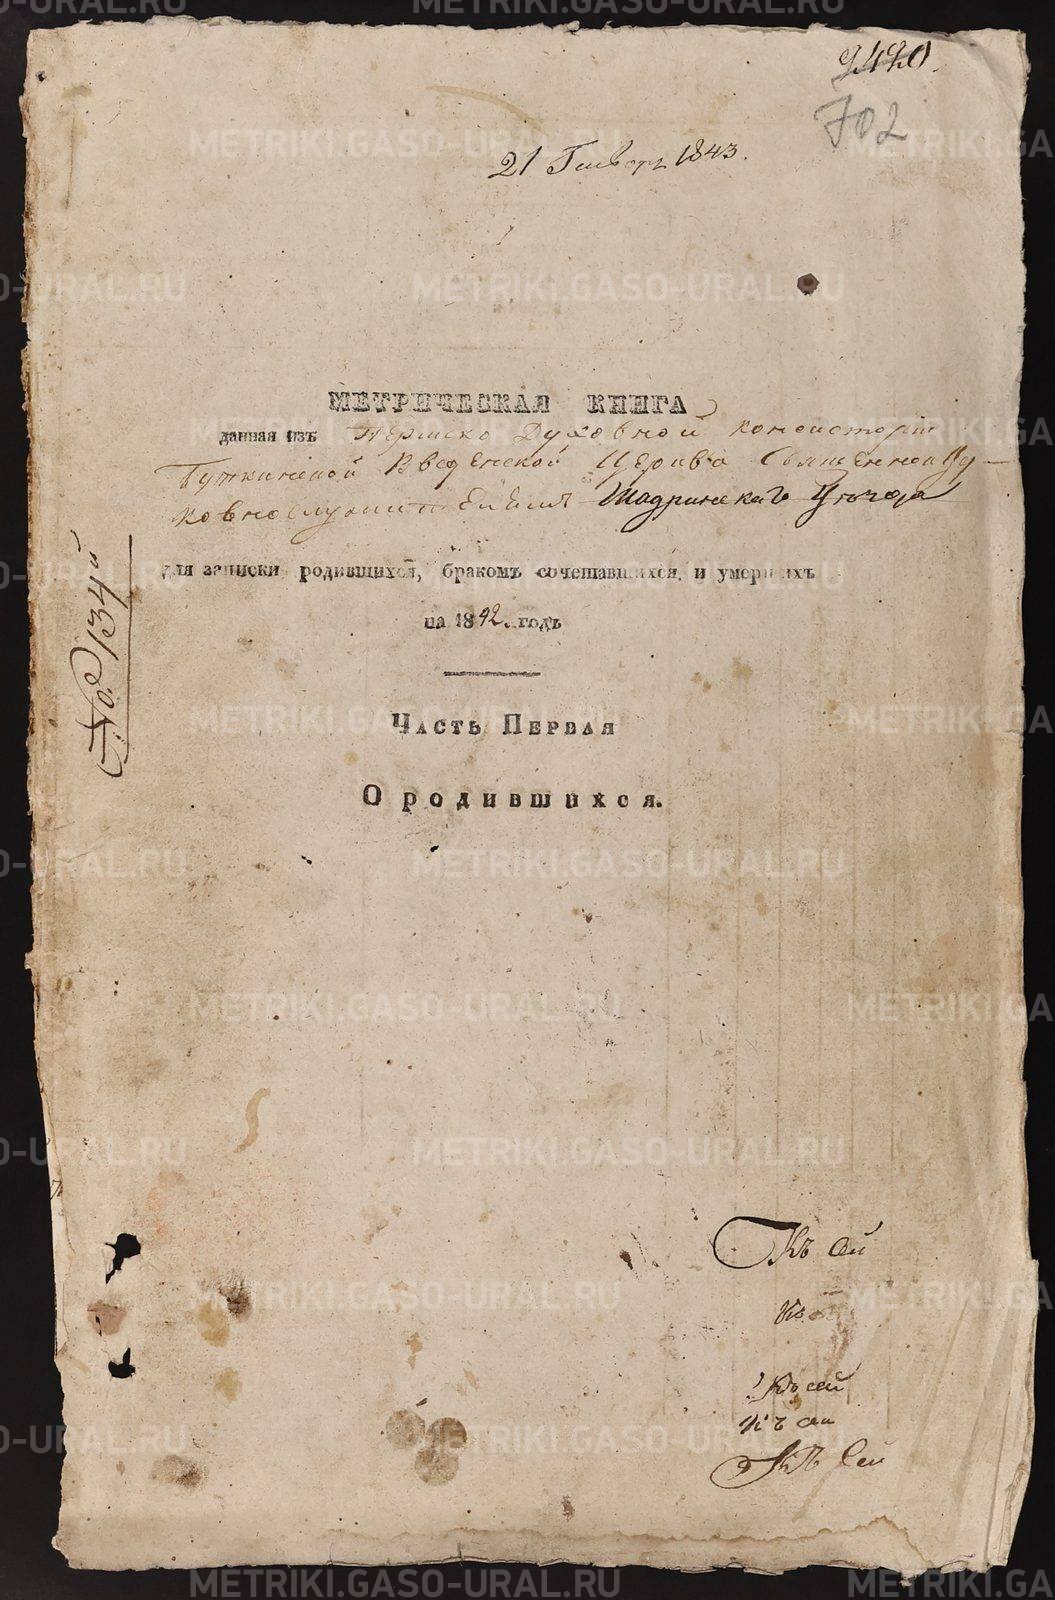 2420.
702
21 Генваря 1843.
МЕТРИЧЕСКАЯ КНИГА
данная изъ Пермской Духовной консисторіи
Буткинской Введенской Церкви Священно и Це-
рковнослужителямъ Шадринскаго Уѣзда
для записки родившихся, бракомъ сочетавшихся, и умершихъ
на 1842. годъ
№ 134й
Часть Первая
О родившихся.
Къ сей
Къ
Къ сей
Къ сей
Къ Сей
METRIKI.GASO-URAL.RU